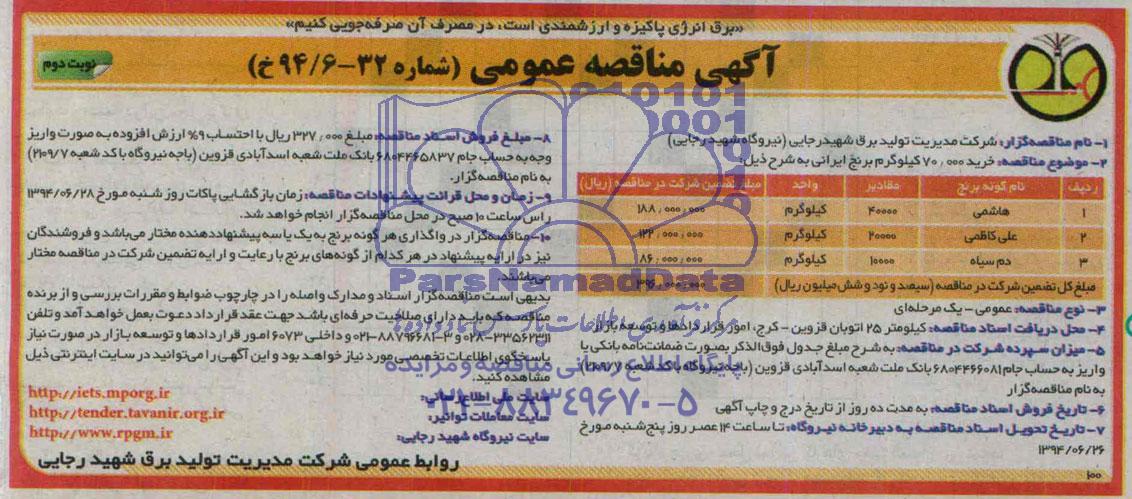 «برق انرژی پاکیزه و ارزشمندی است، در مصرف آن صرفه‌جویی کنیم»
آگهی مناقصه عمومی (شماره ۳۲-۹۴/۶ خ)
نوبت دوم
۱- نام مناقصه‌گزار: شرکت مدیریت تولید برق شهید رجایی (نیروگاه شهید رجایی)
۲- موضوع مناقصه: خرید ۷۰٫۰۰۰ کیلوگرم برنج ایرانی به شرح ذیل:
ردیف نام گونه برنج مقادیر واحد مبلغ تضمین شرکت در مناقصه (ریال)
۱ هاشمی ۴۰۰۰۰ کیلوگرم ۱۸۸٫۰۰۰٫۰۰۰
۲ علی کاظمی ۲۰۰۰۰ کیلوگرم ۱۲۲٫۰۰۰٫۰۰۰
۳ دم سیاه ۱۰۰۰۰ کیلوگرم ۸۶٫۰۰۰٫۰۰۰
مبلغ کل تضمین شرکت در مناقصه (سیصد و نود و شش میلیون ریال) ۳۹۶٫۰۰۰٫۰۰۰
۳- نوع مناقصه: عمومی - یک مرحله‌ای
۴- محل دریافت اسناد مناقصه: کیلومتر ۲۵ اتوبان قزوین - کرج، امور قراردادها و توسعه بازار
۵- میزان سپرده شرکت در مناقصه: به شرح مبلغ جدول فوق‌الذکر بصورت ضمانت‌نامه بانکی یا
واریز به حساب جام ۶۸۰۴۴۶۶۰۸۱ بانک ملت شعبه اسدآبادی قزوین (باجه نیروگاه با کد شعبه ۲۱۰۹/۷)
به نام مناقصه‌گزار
۶- تاریخ فروش اسناد مناقصه: به مدت ده روز از تاریخ درج و چاپ آگهی
۷- تاریخ تحویل اسناد مناقصه به دبیرخانه نیروگاه: تا ساعت ۱۴ عصر روز پنج‌شنبه مورخ
۱۳۹۴/۰۶/۲۶
۸- مبلغ فروش اسناد مناقصه: مبلغ ۳۲۷٫۰۰۰ ریال با احتساب ۹% ارزش افزوده به صورت واریز
وجه به حساب جام ۶۸۰۴۴۶۵۸۳۷ بانک ملت شعبه اسدآبادی قزوین (باجه نیروگاه با کد شعبه ۲۱۰۹/۷)
به نام مناقصه‌گزار.
۹- زمان و محل قرائت پیشنهادات مناقصه: زمان بازگشایی پاکات روز شنبه مورخ ۱۳۹۴/۰۶/۲۸
راس ساعت ۱۰ صبح در محل مناقصه‌گزار انجام خواهد شد.
۱۰- مناقصه‌گزار در واگذاری هر گونه برنج به یک یا سه پیشنهاددهنده مختار می‌باشد و فروشندگان
نیز در ارایه پیشنهاد در هر کدام از گونه‌های برنج با رعایت و ارایه تضمین شرکت در مناقصه مختار
می‌باشند.
بدیهی است مناقصه‌گزار اسناد و مدارک واصله را در چارچوب ضوابط و مقررات بررسی و از برنده
مناقصه که باید دارای صلاحیت حرفه‌ای باشد جهت عقد قرارداد دعوت بعمل خواهد آمد و تلفن
و ۳-۸۸۷۹۶۶۸۱-۰۲۱ و داخلی ۶۰۷۳ امور قراردادها و توسعه بازار در صورت نیاز
پاسخگوی اطلاعات تخصصی مورد نیاز خواهد بود و این آگهی را می‌توانید در سایت اینترنتی ذیل
مشاهده کنید.
سایت ملی اطلاع‌رسانی: http://iets.mporg.ir
سایت معاملات توانیر: http://tender.tavanir.org.ir
سایت نیروگاه شهید رجایی: http://www.rpgm.ir
روابط عمومی شرکت مدیریت تولید برق شهید رجایی
۱۰۰
ParsNamadData
پایگاه اطلاع رسانی مناقصه و مزایده
۰۲۱-۸۸۳۴۹۶۷۰-۵